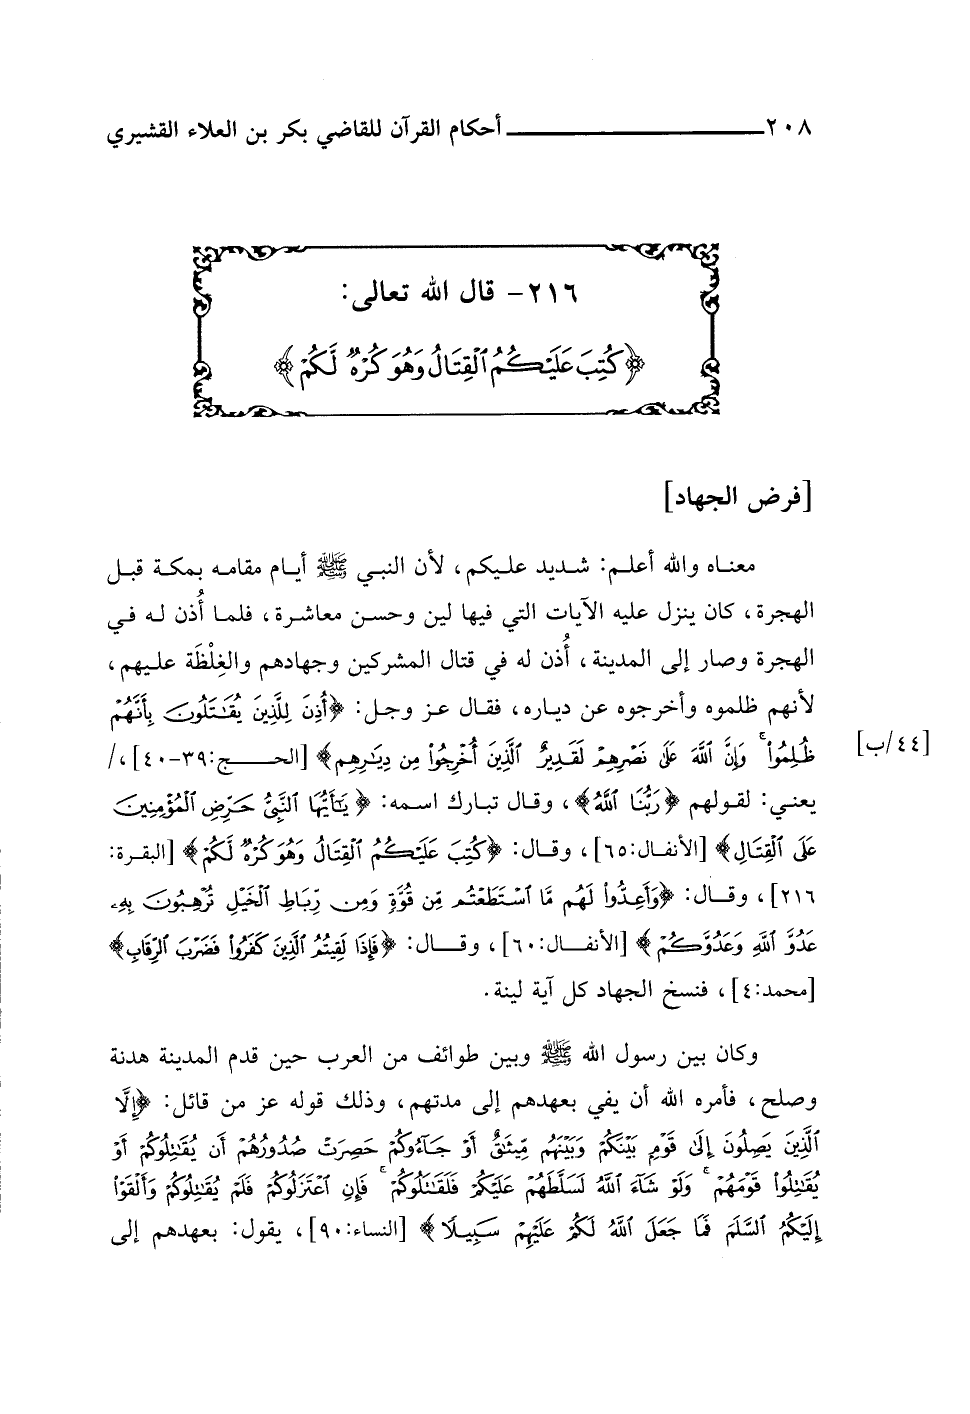 ٢٠٨ أحكام القرآن للقاضي بكر بن العلاء القشيري
٢١٦- قال الله تعالى:
﴿كُتِبَ عَلَيْكُمُ ٱلْقِتَالُ وَهُوَ كُرْهٌ لَّكُمْ﴾
[فرض الجهاد]
معناه والله أعلم: شديد عليكم، لأن النبي ﷺ أيام مقامه بمكة قبل
الهجرة، كان ينزل عليه الآيات التي فيها لين وحسن معاشرة، فلما أُذن له في
الهجرة وصار إلى المدينة، أُذن له في قتال المشركين وجهادهم والغِلْظَة عليهم،
لأنهم ظلموه وأخرجوه عن دياره، فقال عز وجل: ﴿أُذِنَ لِلَّذِينَ يُقَٰتَلُونَ بِأَنَّهُمْ
ظُلِمُوا۟ ۚ وَإِنَّ ٱللَّهَ عَلَىٰ نَصْرِهِمْ لَقَدِيرٌ ٱلَّذِينَ أُخْرِجُوا۟ مِن دِيَٰرِهِم﴾ [الحج:٣٩-٤٠]،/
[٤٤/ب]
يعني: لقولهم ﴿رَبُّنَا ٱللَّهُ﴾، وقال تبارك اسمه: ﴿يَٰٓأَيُّهَا ٱلنَّبِىُّ حَرِّضِ ٱلْمُؤْمِنِينَ
عَلَى ٱلْقِتَالِ﴾ [الأنفال:٦٥]، وقال: ﴿كُتِبَ عَلَيْكُمُ ٱلْقِتَالُ وَهُوَ كُرْهٌ لَّكُمْ﴾ [البقرة:
٢١٦]، وقال: ﴿وَأَعِدُّوا۟ لَهُم مَّا ٱسْتَطَعْتُم مِّن قُوَّةٍ وَمِن رِّبَاطِ ٱلْخَيْلِ تُرْهِبُونَ بِهِۦ
عَدُوَّ ٱللَّهِ وَعَدُوَّكُمْ﴾ [الأنفال:٦٠]، وقال: ﴿فَإِذَا لَقِيتُمُ ٱلَّذِينَ كَفَرُوا۟ فَضَرْبَ ٱلرِّقَابِ﴾
[محمد:٤]، فنسخ الجهاد كل آية لينة.
وكان بين رسول الله ﷺ وبين طوائف من العرب حين قدم المدينة هدنة
وصلح، فأمره الله أن يفي بعهدهم إلى مدتهم، وذلك قوله عز من قائل: ﴿إِلَّا
ٱلَّذِينَ يَصِلُونَ إِلَىٰ قَوْمٍۭ بَيْنَكُمْ وَبَيْنَهُم مِّيثَٰقٌ أَوْ جَآءُوكُمْ حَصِرَتْ صُدُورُهُمْ أَن يُقَٰتِلُوكُمْ أَوْ
يُقَٰتِلُوا۟ قَوْمَهُمْ ۚ وَلَوْ شَآءَ ٱللَّهُ لَسَلَّطَهُمْ عَلَيْكُمْ فَلَقَٰتَلُوكُمْ ۚ فَإِنِ ٱعْتَزَلُوكُمْ فَلَمْ يُقَٰتِلُوكُمْ وَأَلْقَوْا۟
إِلَيْكُمُ ٱلسَّلَمَ فَمَا جَعَلَ ٱللَّهُ لَكُمْ عَلَيْهِمْ سَبِيلًا﴾ [النساء:٩٠]، يقول: بعهدهم إلى